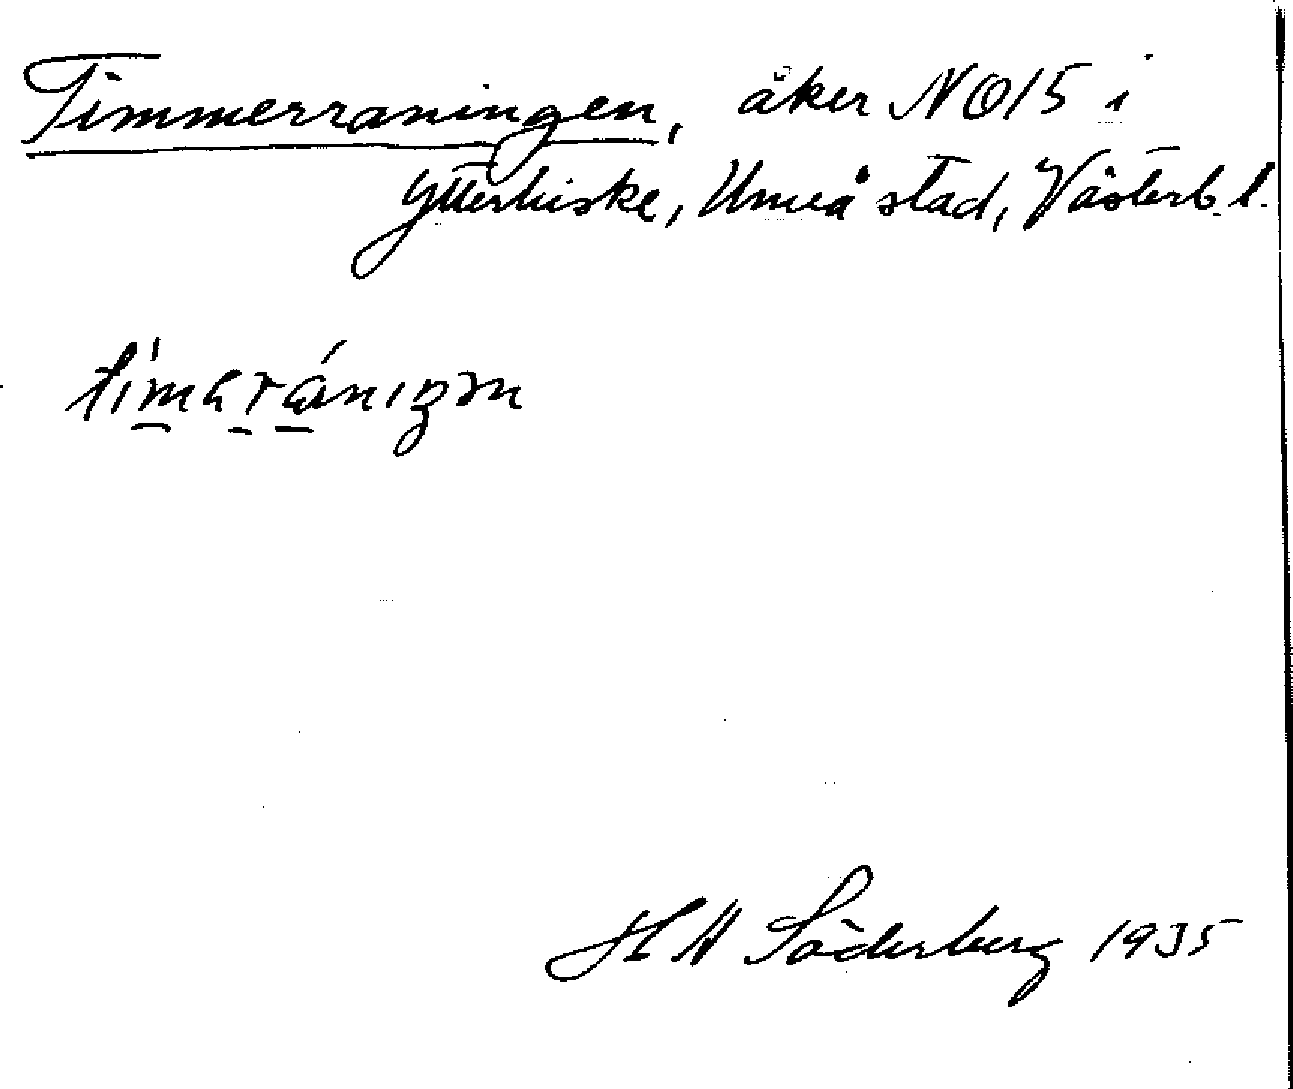 Timmerraningen, åker NO15 i
Ytterhiske, Umeå stad, Västerb. l.
H W Söderberg 1935